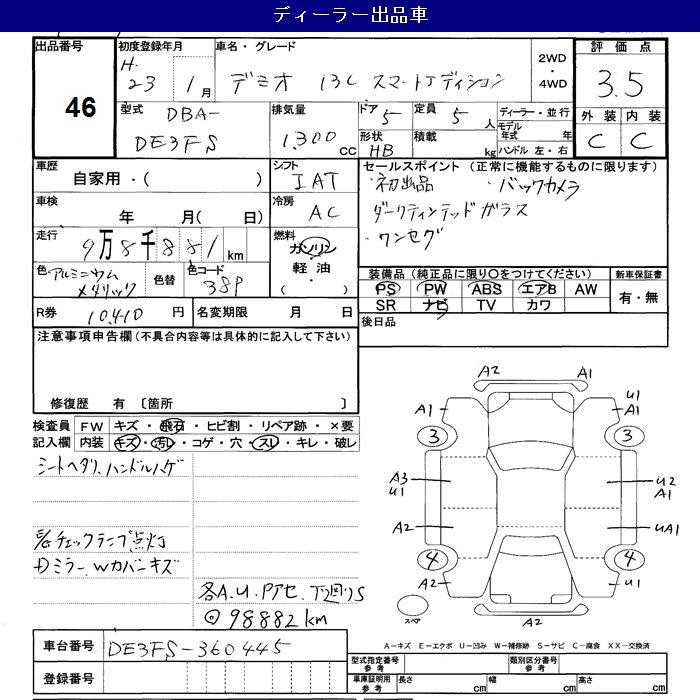 ディーラー出品車
出品番号 初度登録年月 車名・グレード 評価点
46 H.23 1月 デミオ 13C スマートエディション 2WD・4WD 3.5
型式 DBA-DE3FS 排気量 1,300cc ドア 5 定員 5人 ディーラー・並行 外装 内装
形状 HB 積載 kg モデル年式 年 ハンドル 左・右 C C
車歴 自家用・( ) シフト IAT セールスポイント (正常に機能するものに限ります)
・初出品 ・バックカメラ
車検 年 月( 日) 冷房 AC ダークティンテッドガラス
・ワンセグ
走行 9万8千881km 燃料 ガソリン・軽油・( )
色 アルミニウムメタリック 色替 色コード 38P
装備品 (純正品に限り○をつけてください) 新車保証書
PS PW ABS エアB AW 有・無
SR ナビ TV カワ
R券 10,410円 名変期限 月 日 後日品
注意事項申告欄 (不具合内容等は具体的に記入して下さい)
修復歴 有 〔箇所 〕
検査員 FW キズ・飛石・ヒビ割・リペア跡・×要
記入欄 内装 キズ・汚レ・コゲ・穴・スレ・キレ・破レ
シートヘタリ、ハンドルハゲ
チェックランプ点灯
Dミラー、Wカバーキズ
各A.U.Pアセ.下廻りS
◎98882km
A2 A1
A1 U1 A1
3 3
A3 U1 U2 A1
A2 UA1
4 4
A2 U1
A2
スペア
A-キズ E-エクボ U-凹み W-補修跡 S-サビ C-腐食 XX-交換済
車台番号 DE3FS-360445
登録番号
型式指定番号 参考 類別区分番号 参考
車庫証明用 参考 長さ cm 幅 cm 高さ cm